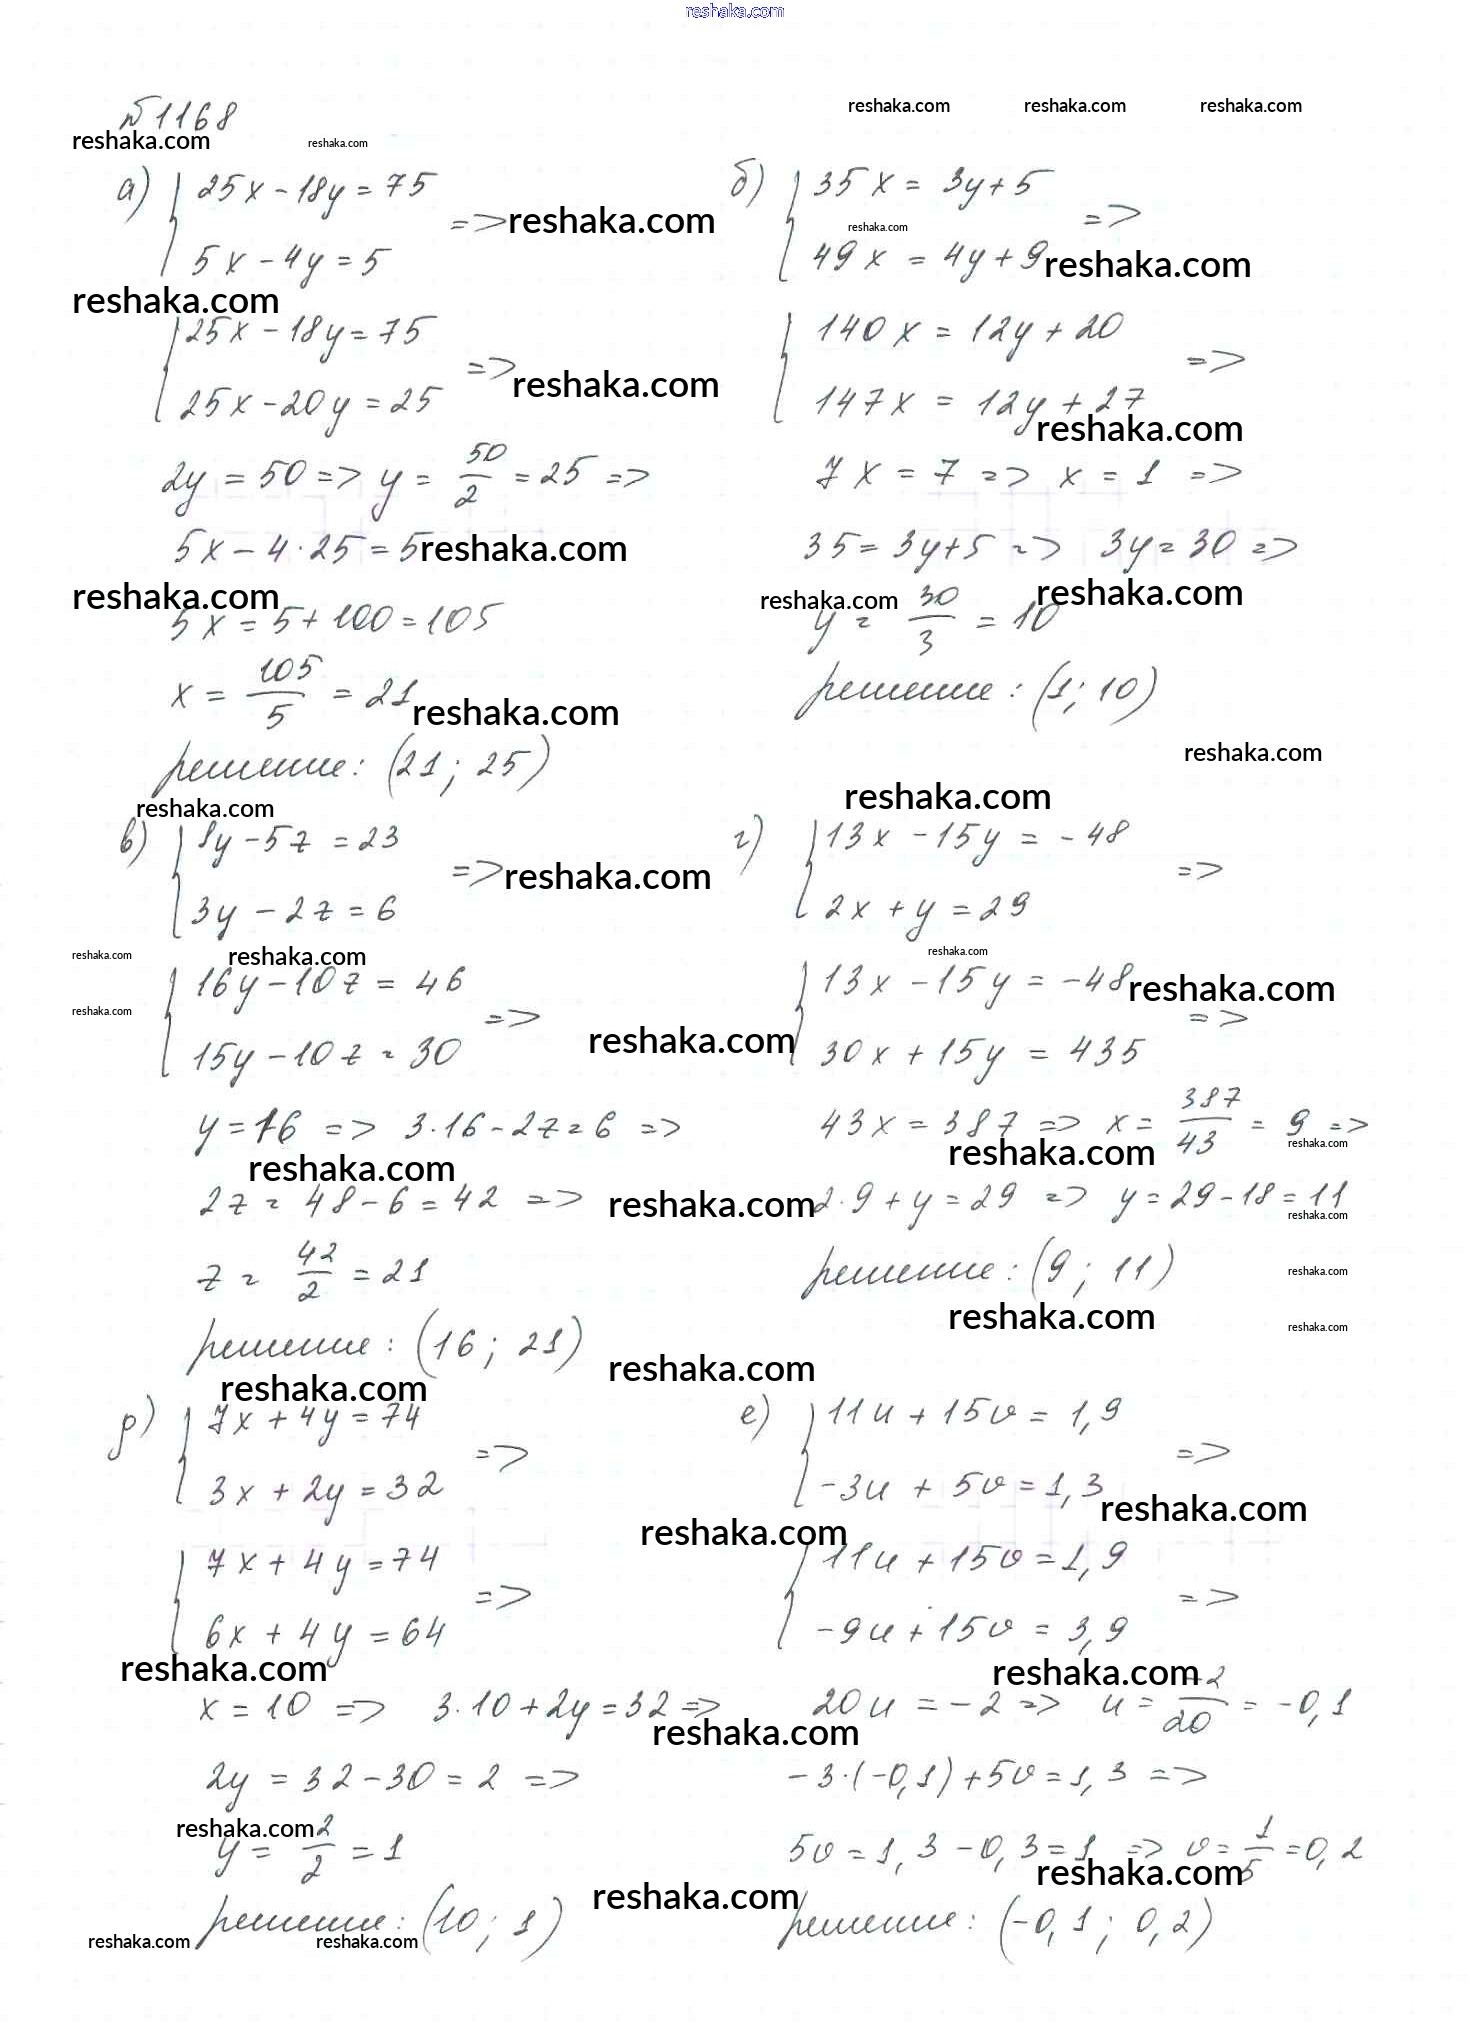 reshaka.com
№1168
reshaka.com reshaka.com reshaka.com reshaka.com reshaka.com
а) { 25x - 18y = 75
5x - 4y = 5 => reshaka.com
reshaka.com
{ 25x - 18y = 75
25x - 20y = 25 => reshaka.com
2y = 50 => y = 50/2 = 25 =>
5x - 4·25 = 5 reshaka.com
reshaka.com
5x = 5 + 100 = 105
x = 105/5 = 21 reshaka.com
решение: (21; 25)
reshaka.com
б) { 35x = 3y + 5
reshaka.com
49x = 4y + 9 => reshaka.com
{ 140x = 12y + 20
147x = 12y + 27 =>
reshaka.com
7x = 7 => x = 1 =>
35 = 3y + 5 => 3y = 30 =>
reshaka.com reshaka.com
y = 30/3 = 10
решение: (1; 10)
reshaka.com
reshaka.com
в) { 8y - 5z = 23
3y - 2z = 6 => reshaka.com
reshaka.com reshaka.com
{ 16y - 10z = 46
reshaka.com
15y - 10z = 30 => reshaka.com
y = 16 => 3·16 - 2z = 6 =>
reshaka.com
2z = 48 - 6 = 42 => reshaka.com
z = 42/2 = 21
решение: (16; 21)
reshaka.com reshaka.com
г) { 13x - 15y = -48
2x + y = 29 =>
reshaka.com
{ 13x - 15y = -48 reshaka.com
30x + 15y = 435 =>
43x = 387 => x = 387/43 = 9 =>
reshaka.com reshaka.com
2·9 + y = 29 => y = 29 - 18 = 11
reshaka.com
решение: (9; 11)
reshaka.com
reshaka.com reshaka.com
р) { 7x + 4y = 74
3x + 2y = 32 =>
reshaka.com
{ 7x + 4y = 74
6x + 4y = 64 =>
reshaka.com
x = 10 => 3·10 + 2y = 32 =>
reshaka.com
2y = 32 - 30 = 2 =>
reshaka.com
y = 2/2 = 1
решение: (10; 1)
reshaka.com reshaka.com reshaka.com
е) { 11u + 15v = 1,9
-3u + 5v = 1,3 =>
reshaka.com
{ 11u + 15v = 1,9
-9u + 15v = 3,9 =>
reshaka.com
20u = -2 => u = -2/20 = -0,1
-3·(-0,1) + 5v = 1,3 =>
5v = 1,3 - 0,3 = 1 => v = 1/5 = 0,2
reshaka.com
решение: (-0,1; 0,2)